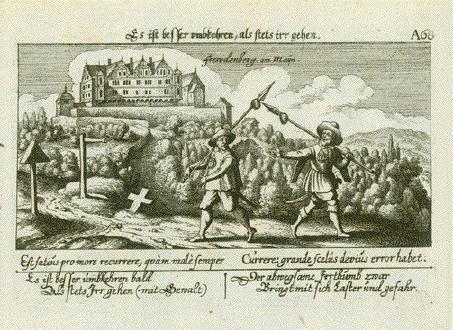 Es ist besser vmbkehren, als stets irr gehen.
A66
Freudenberg am Mayn
Est satius pro more recurrere, quàm malè semper
Currere; grande scelus devius error habet.
Es ist besser umbkehren bald
Als stets Irr gehen (mit Gewalt)
Der abwegsame Jerthumb zwar
Bringt mit sich Laster und gefahr.